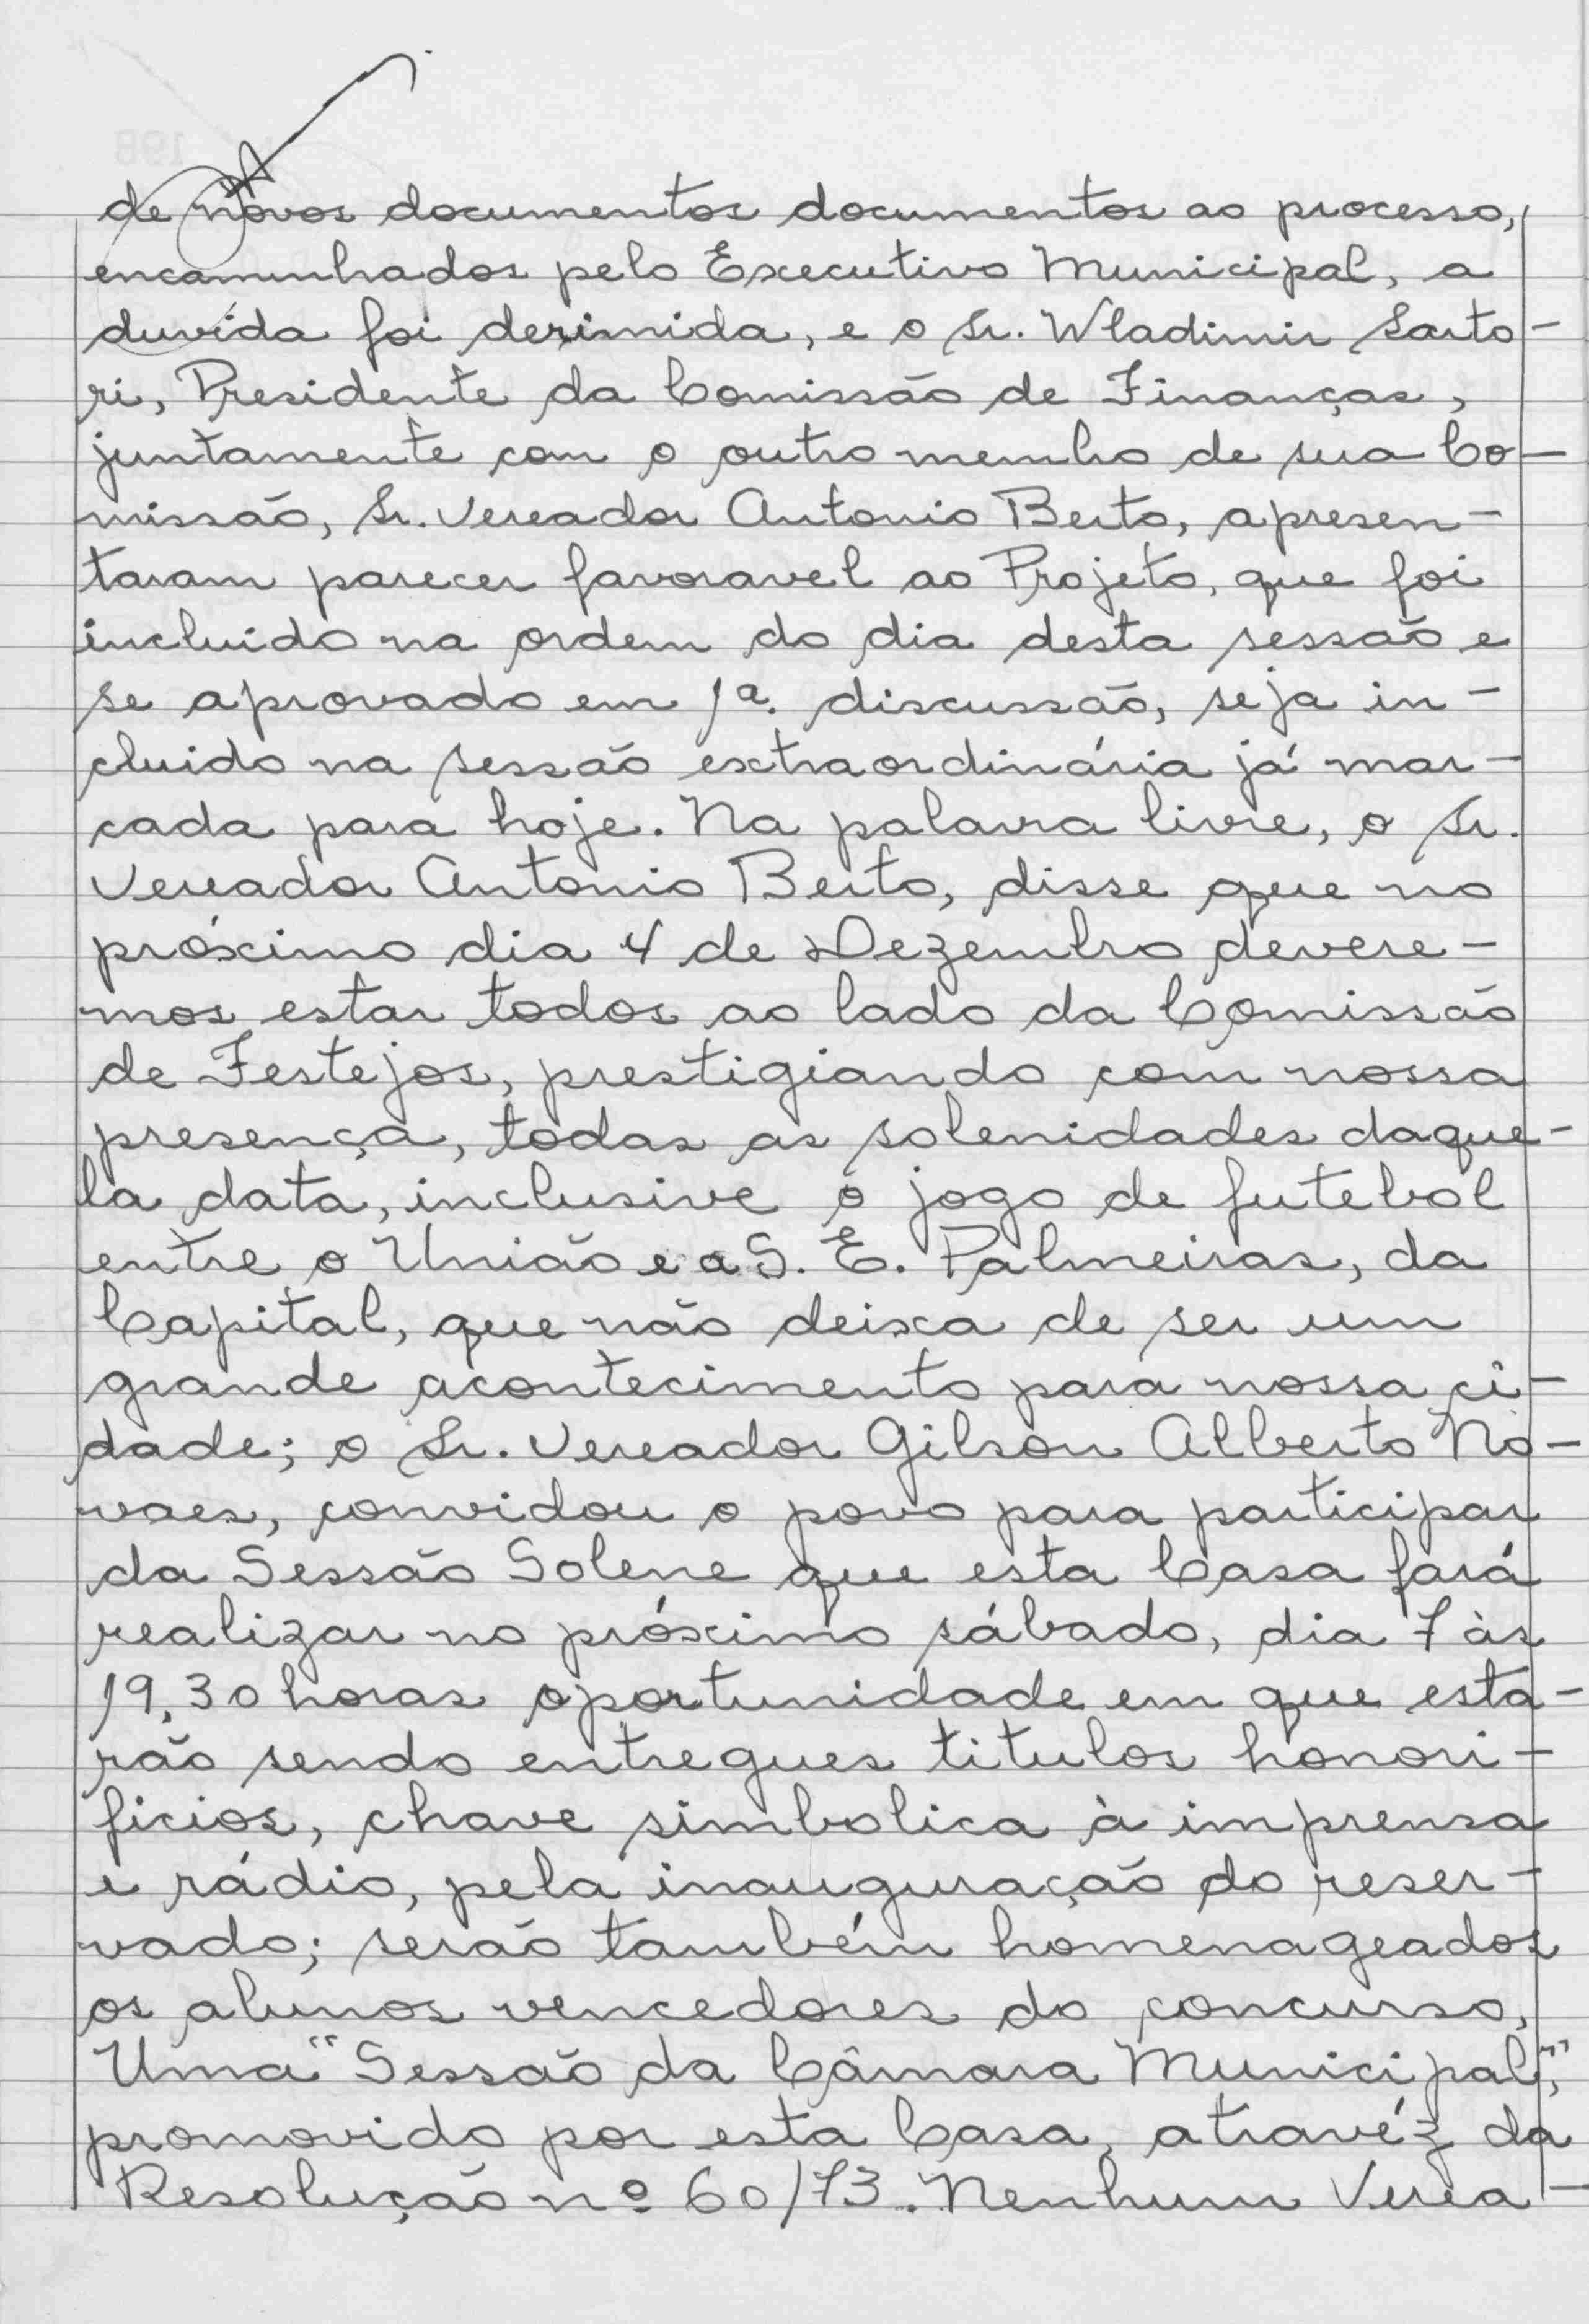 de novos documentos documentos ao processo,
encaminhados pelo Executivo Municipal, a
duvida foi derimida, e o Sr. Wladimir Sarto-
ri, Presidente da Comissão de Finanças,
juntamente com o outro membro de sua Co-
missão, Sr. Vereador Antonio Berto, apresen-
taram parecer favoravel ao Projeto, que foi
incluido na ordem do dia desta sessão e
se aprovado em 1ª. discussão, seja in-
cluido na sessão extraordinária já mar-
cada para hoje. Na palavra livre, o Sr.
Vereador Antonio Berto, disse que no
próximo dia 4 de Dezembro devere-
mos estar todos ao lado da Comissão
de Festejos, prestigiando com nossa
presença, todas as solenidades daque-
la data, inclusive o jogo de futebol
entre o União e a S. E. Palmeiras, da
Capital, que não deixa de ser um
grande acontecimento para nossa ci-
dade; o Sr. Vereador Gilson Alberto No-
vaes, convidou o povo para participar
da Sessão Solene que esta Casa fará
realizar no próximo sábado, dia 7 às
19,30 horas oportunidade em que esta-
rão sendo entregues titulos honori-
ficios, chave simbolica à imprensa
e rádio, pela inauguração do reser-
vado; serão também homenageados
os alunos vencedores do concurso,
Uma "Sessão da Câmara Municipal",
promovido por esta Casa, atravéz da
Resolução nº 60/73. Nenhum Verea-